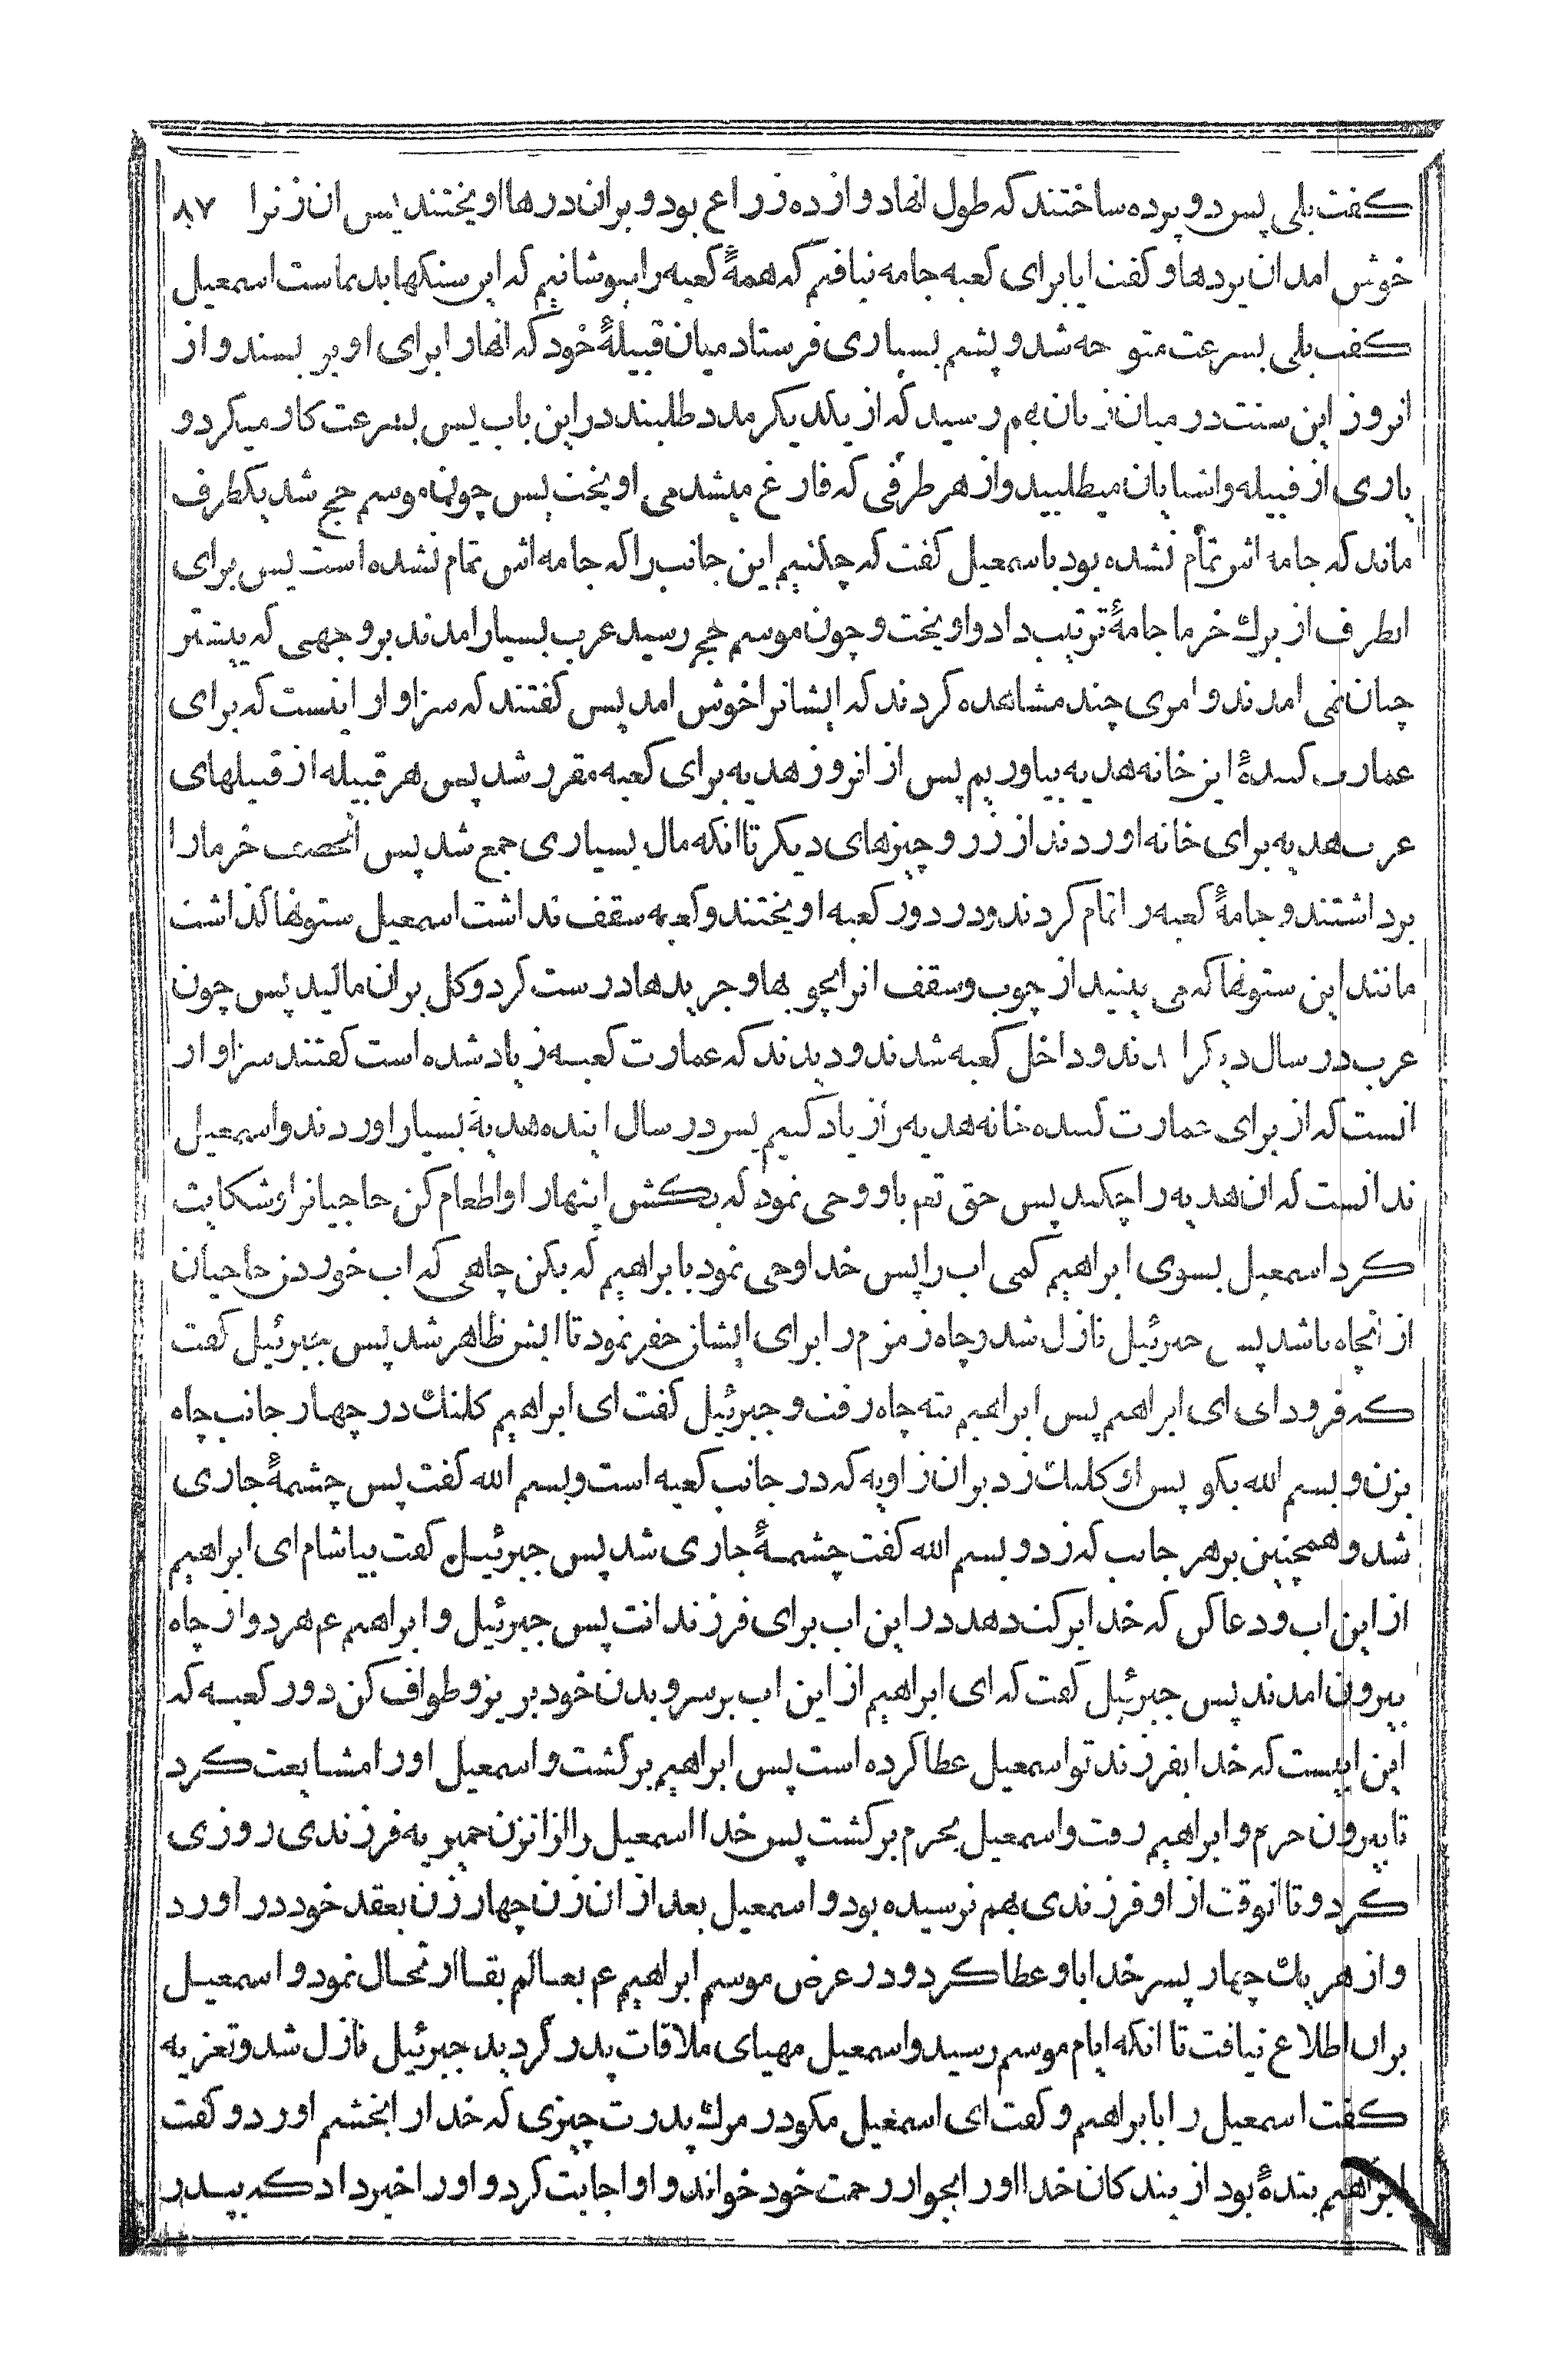 كفت بلی پس دو پرده ساختند که طول انها دوازده زراع بود و بران درها اویختند پس ان زنرا ۸۷
خوش امد ان پردها و کفت ایا برای کعبه جامه نبافیم که همهٔ کعبه را بپوشانیم که این سنکها بدنماست اسمعیل
کفت بلی بسرعت متوجه شد و پشم بسیاری فرستاد میان قبیلهٔ خود که انها را برای او بریسند و از
انروز این سنت در میان زنان بهم رسید که از یکدیکر مدد طلبند در این باب پس بسرعت کار میکرد و
یاری از قبیله و اشنایان میطلبید و از هر طرفی که فارغ میشد می اویخت پس چون موسم حج شد یکطرف
ماند که جامه اش تمام نشده بود باسمعیل کفت که چکنیم این جانب را که جامه اش تمام نشده است پس برای
انطرف از برك خرما جامهٔ ترتیب داد و اویخت و چون موسم حج رسید عرب بسیار امدند بر وجهی که پیشتر
چنان نمی امدند و امری چند مشاهده کردند که ایشانرا خوش امد پس کفتند که سزاوار اینست که برای
عمارت کنندهٔ این خانه هدیه بیاوریم پس از انروز هدیه برای کعبه مقرر شد پس هر قبیله از قبیلهای
عرب هدیه برای خانه اوردند از زر و چیزهای دیکر تا انکه مال بسیاری جمع شد پس انحصیر خرما را
برداشتند و جامهٔ کعبه را تمام کردند و در دور کعبه اویختند و کعبه سقف نداشت اسمعیل ستونها کذاشت
مانند این ستونها که می بینید از چوب و سقف انرا بچوبها و جریدها درست کرد و کل بران مالید پس چون
عرب در سال دیکر امدند و داخل کعبه شدند و دیدند که عمارت کعبه زیاد شده است کفتند سزاوار
انست که از برای عمارت کننده خانه هدیه را زیاد کنیم پس در سال اینده هدیهٔ بسیار اوردند و اسمعیل
ندانست که ان هدیه را چکند پس حق تعم باو وحی نمود که بکش اینهار او اطعام کن حاجیانرا و شکایت
کرد اسمعیل بسوی ابراهیم کمی اب را پس خدا وحی نمود بابراهیم که بکن چاهی که اب خوردن حاجیان
از انچاه باشد پس جبرئیل نازل شد و چاه زمزم را برای ایشان حفر نمود تا ابش ظاهر شد پس جبرئیل کفت
که فرود ای ای ابراهیم پس ابراهیم بته چاه رفت و جبرئیل کفت ای ابراهیم کلنك در چهار جانب چاه
بزن و بسم الله بکو پس او کلنك زد بران زاویه که در جانب کعبه است و بسم الله کفت پس چشمهٔ جاری
شد و همچنین بر هر جانب که زد و بسم الله کفت چشمهٔ جاری شد پس جبرئیل کفت بیاشام ای ابراهیم
از این اب و دعا کن که خدا برکت دهد در این اب برای فرزندانت پس جبرئیل و ابراهیم عم هردو از چاه
بیرون امدند پس جبرئیل کفت که ای ابراهیم از این اب بر سر و بدن خود بریز و طواف کن دور کعبه که
این ابیست که خدا بفرزند تو اسمعیل عطا کرده است پس ابراهیم برکشت و اسمعیل او را مشایعت کرد
تا بیرون حرم و ابراهیم رفت و اسمعیل بحرم برکشت پس خدا اسمعیل را از انزن حمیریه فرزندی روزی
کرد و تا انوقت از او فرزندی بهم نرسیده بود و اسمعیل بعد از ان زن چهار زن بعقد خود در اورد
و از هر یك چهار پسر خدا باو عطا کرد و در عرض موسم ابراهیم عم بعالم بقا ارتحال نمود و اسمعیل
بران اطلاع نیافت تا انکه ایام موسم رسید و اسمعیل مهیای ملاقات پدر کردید جبرئیل نازل شد و تعزیه
کفت اسمعیل را بابراهیم و کفت ای اسمعیل مکو در مرك پدرت چیزی که خدا را بخشم اورد و کفت
ابراهیم بندهٔ بود از بندکان خدا او را بجوار رحمت خود خواند و او اجابت کرد و او را خبر داد که بپدر